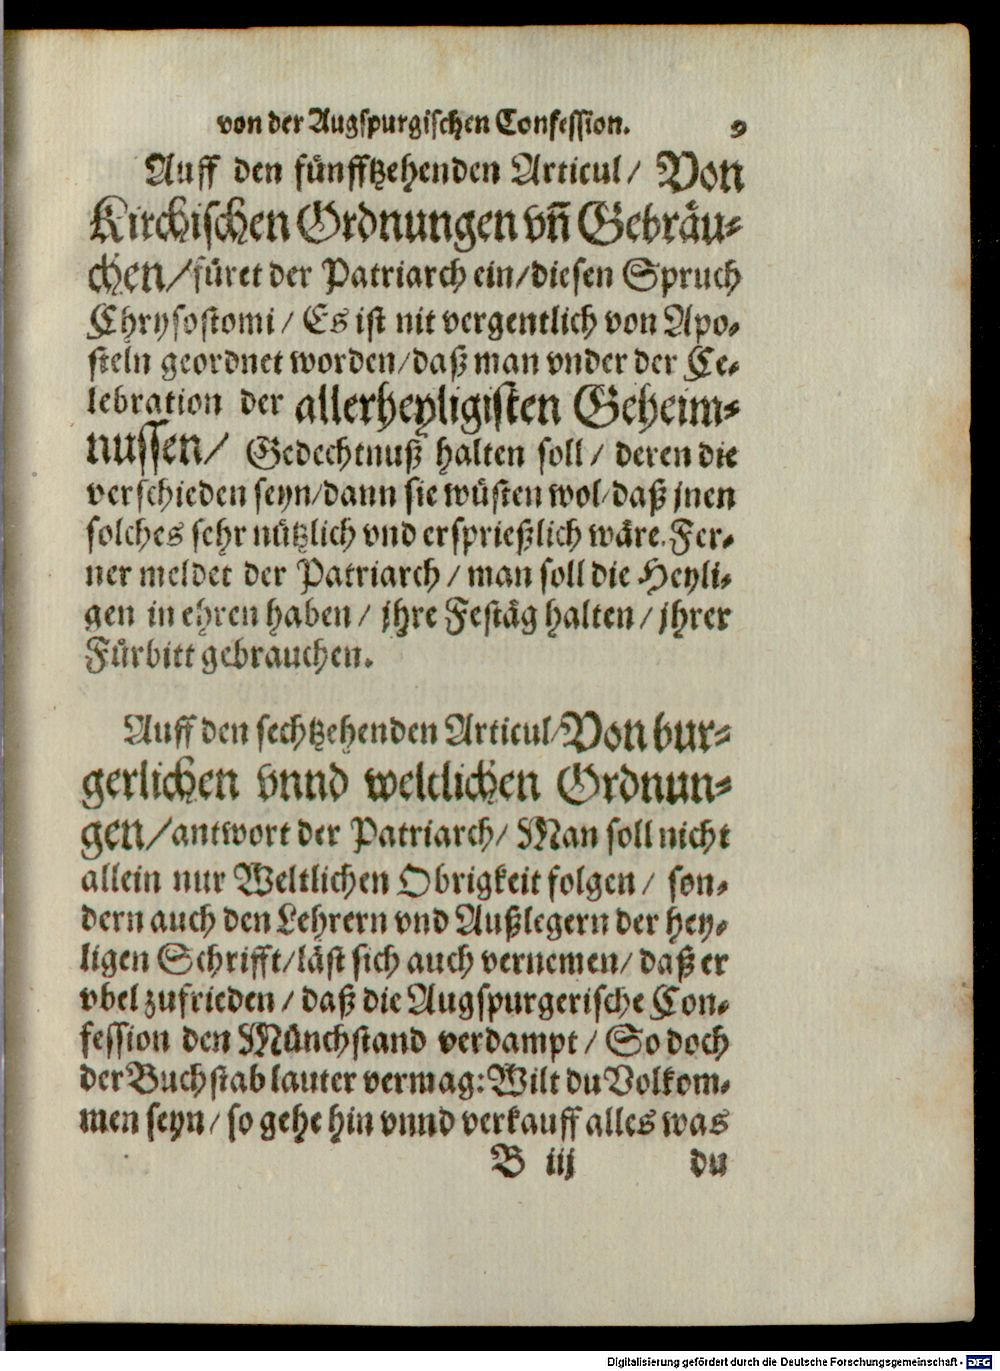 von der Augspurgischen Confession. 9
Auff den fünfftzehenden Articul/ Von
Kirchischen Ordnungen vñ Gebräu-
chen/füret der Patriarch ein/diesen Spruch
Chrysostomi/ Es ist nit vergentlich von Apo-
steln geordnet worden/daß man vnder der Ce-
lebration der allerheyligisten Geheim-
nussen/ Gedechtnuß halten soll/ deren die
verschieden seyn/dann sie wüsten wol/daß jnen
solches sehr nützlich vnd ersprießlich wäre. Fer-
ner meldet der Patriarch/ man soll die Heyli-
gen in ehren haben/ jhre Festäg halten/ jhrer
Fürbitt gebrauchen.
Auff den sechtzehenden Articul/Von bur-
gerlichen vnnd weltlichen Ordnun-
gen/antwort der Patriarch/ Man soll nicht
allein nur Weltlichen Obrigkeit folgen/ son-
dern auch den Lehrern vnd Außlegern der hey-
ligen Schrifft/läst sich auch vernemen/ daß er
vbel zufrieden/ daß die Augspurgerische Con-
fession den Münchstand verdampt/ So doch
der Buchstab lauter vermag: Wilt du Volkom-
men seyn/ so gehe hin vnnd verkauff alles was
B iij du
Digitalisierung gefördert durch die Deutsche Forschungsgemeinschaft - DFG